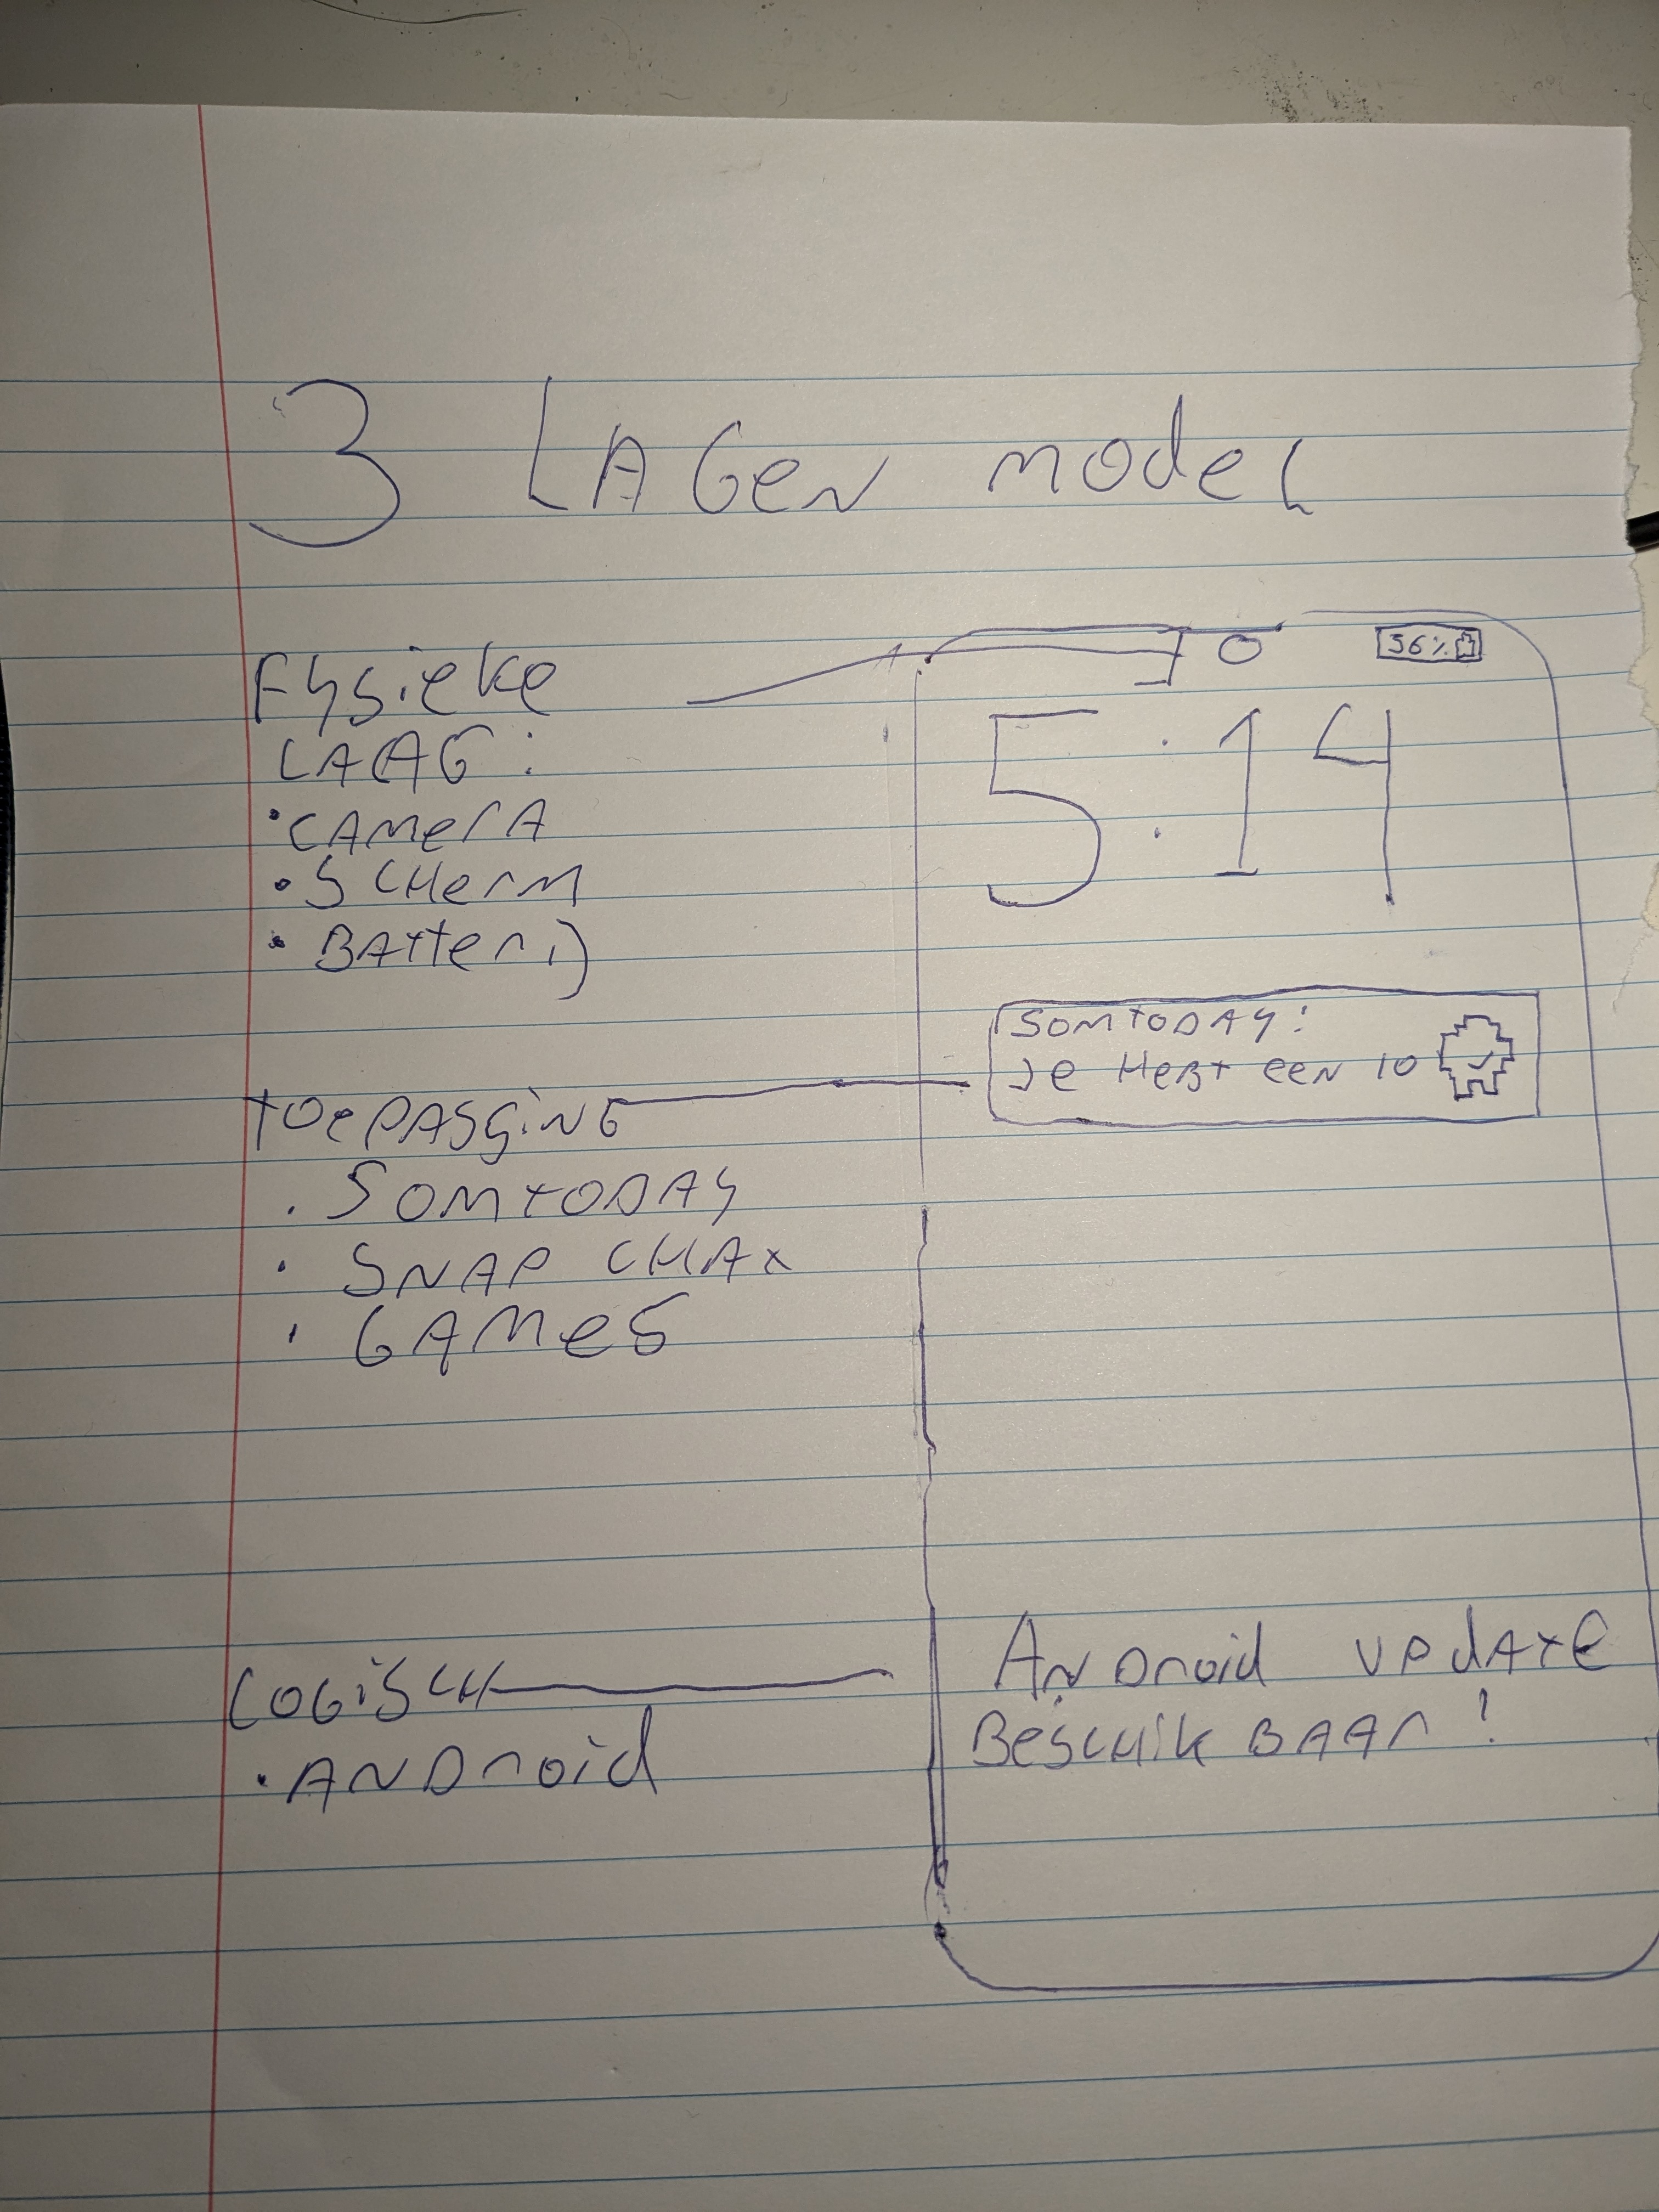 3 LAGen model
Fysieke
LAAG:
• CAMerA
• SCHerm
• BAtterij
toePASSiNG
• SOMtODAY
• SNAP CHAt
• GAMeS
LOGiSCH
• ANDroid
56%
5:14
SOMtODAY:
Je HEBt EEN 10
ANDroid UPdAtE
BeSCHiKBAAr!